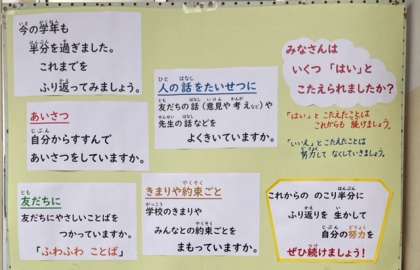 今の学年も
半分を過ぎました。
これまでを
ふり返ってみましょう。
あいさつ
自分からすすんで
あいさつをしていますか。
友だちに
友だちにやさしいことばを
つかっていますか。
「ふわふわ ことば」
人の話をたいせつに
友だちの話(意見や考えなど)や
先生の話などを
よくきいていますか。
きまりや約束ごと
学校のきまりや
みんなとの約束ごとを
まもっていますか。
みなさんは
いくつ「はい」と
こたえられましたか?
「はい」とこたえたことは
これからも 続けましょう。
「いいえ」とこたえたことは
努力して なくしていきましょう。
これからの のこり半分に
ふり返りを 生かして
自分の努力を
ぜひ続けましょう!